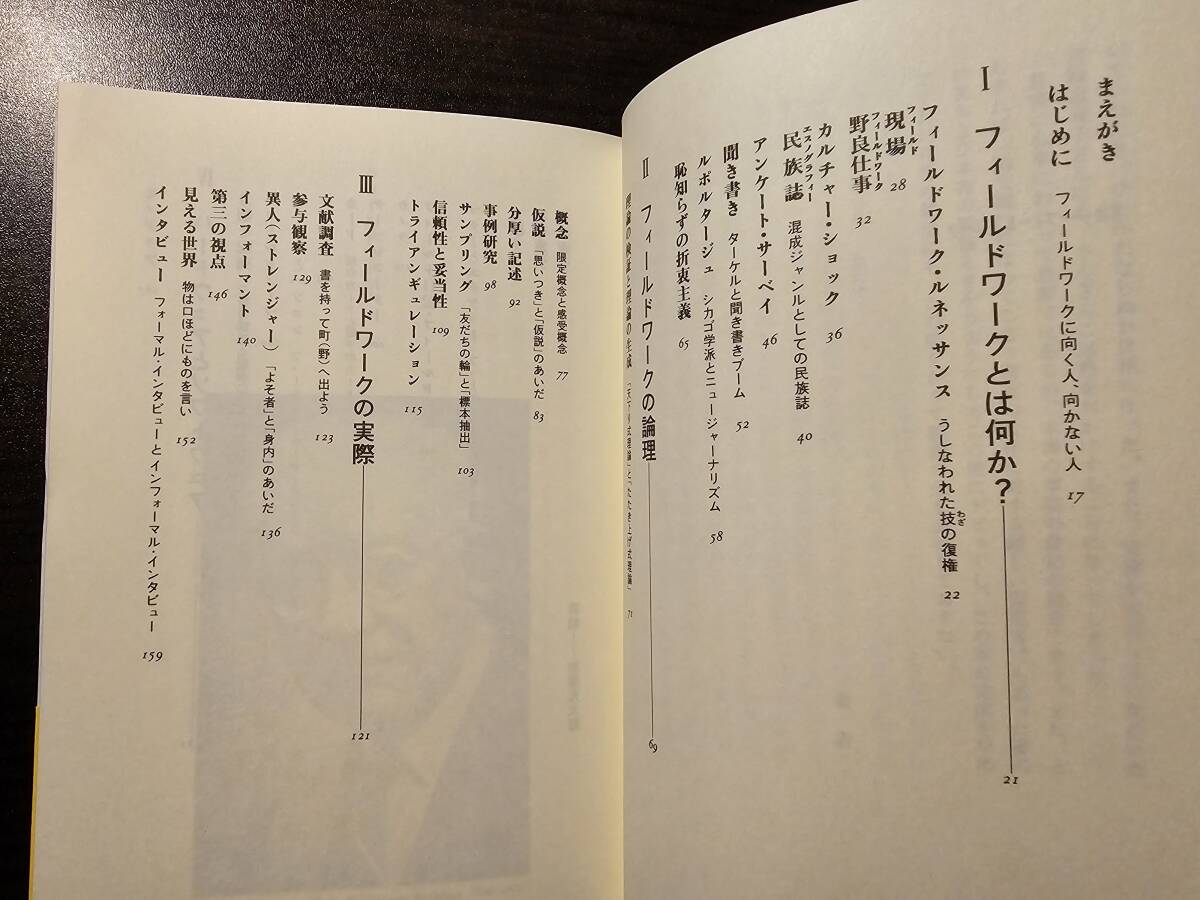 まえがき
はじめに フィールドワークに向く人、向かない人 17
I フィールドワークとは何か? 21
フィールドワーク・ルネッサンス うしなわれた技の復権 22
わざ
現場 28
フィールド
野良仕事 32
フィールドワーク
カルチャー・ショック 36
民族誌 混成ジャンルとしての民族誌 40
エスノグラフィー
アンケート・サーベイ 46
聞き書き ターケルと聞き書きブーム 52
ルポルタージュ シカゴ学派とニュージャーナリズム 58
恥知らずの折衷主義 65
II フィールドワークの論理 69
理論の検証と理論の生成 「天下り式理論」と「たたき上げ式理論」 71
概念 限定概念と感受概念 77
仮説 「思いつき」と「仮説」のあいだ 83
分厚い記述 92
事例研究 98
サンプリング 「友だちの輪」と「標本抽出」 103
信頼性と妥当性 109
トライアンギュレーション 115
III フィールドワークの実際 121
文献調査 書を持って町(野)へ出よう 123
参与観察 129
異人(ストレンジャー) 「よそ者」と「身内」のあいだ 136
インフォーマント 140
第三の視点 146
見える世界 物は口ほどにものを言い 152
インタビュー フォーマル・インタビューとインフォーマル・インタビュー 159